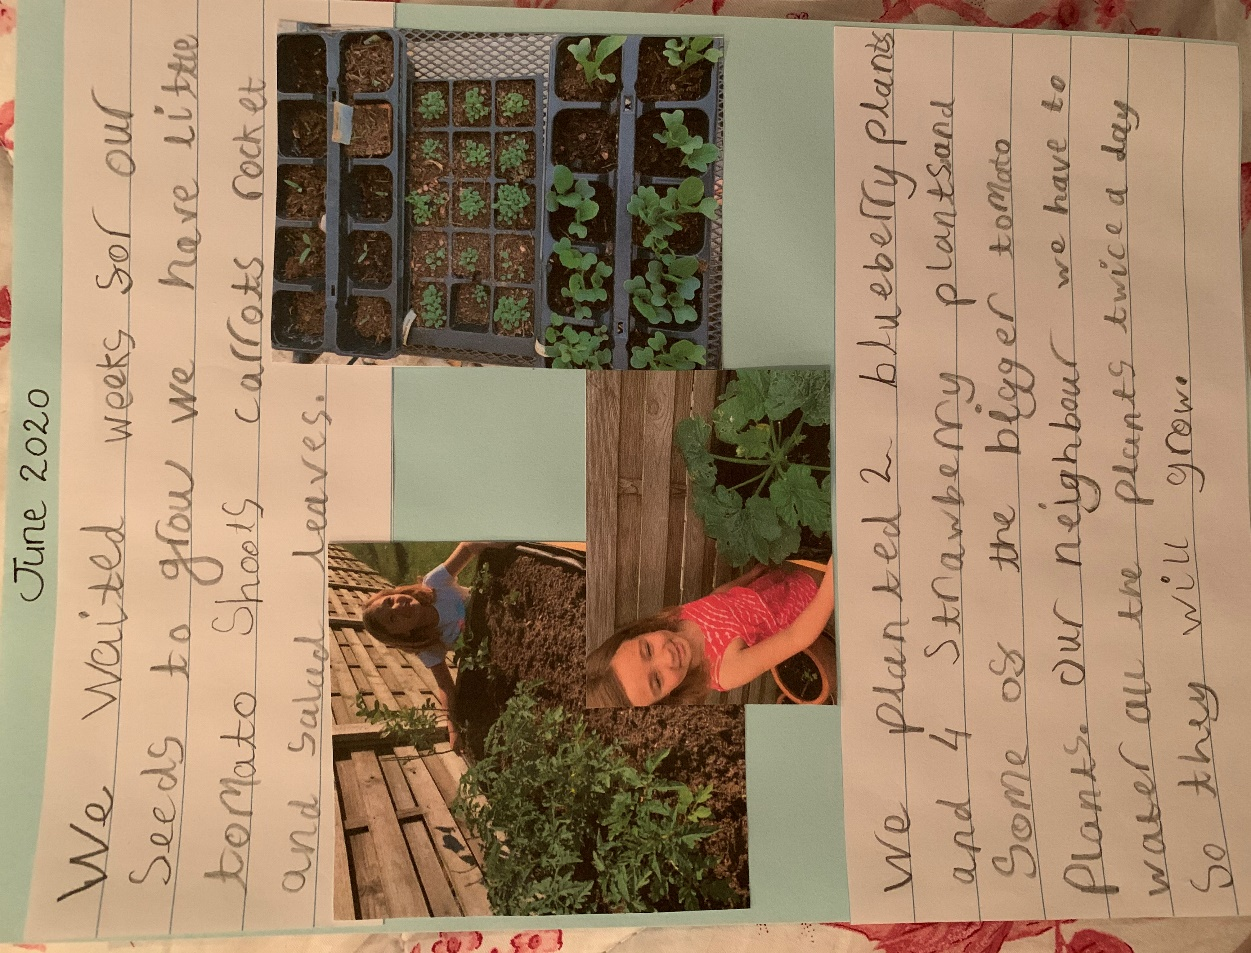 June 2020
We waited weeks for our
seeds to grow we have little
tomato shoots carrots rocket
and salad leaves.
We planted 2 blueberry plants
and 4 strawberry plantsand
some of the bigger tomato
plants. Our neighbour we have to
water all the plants twice a day
so they will grow.